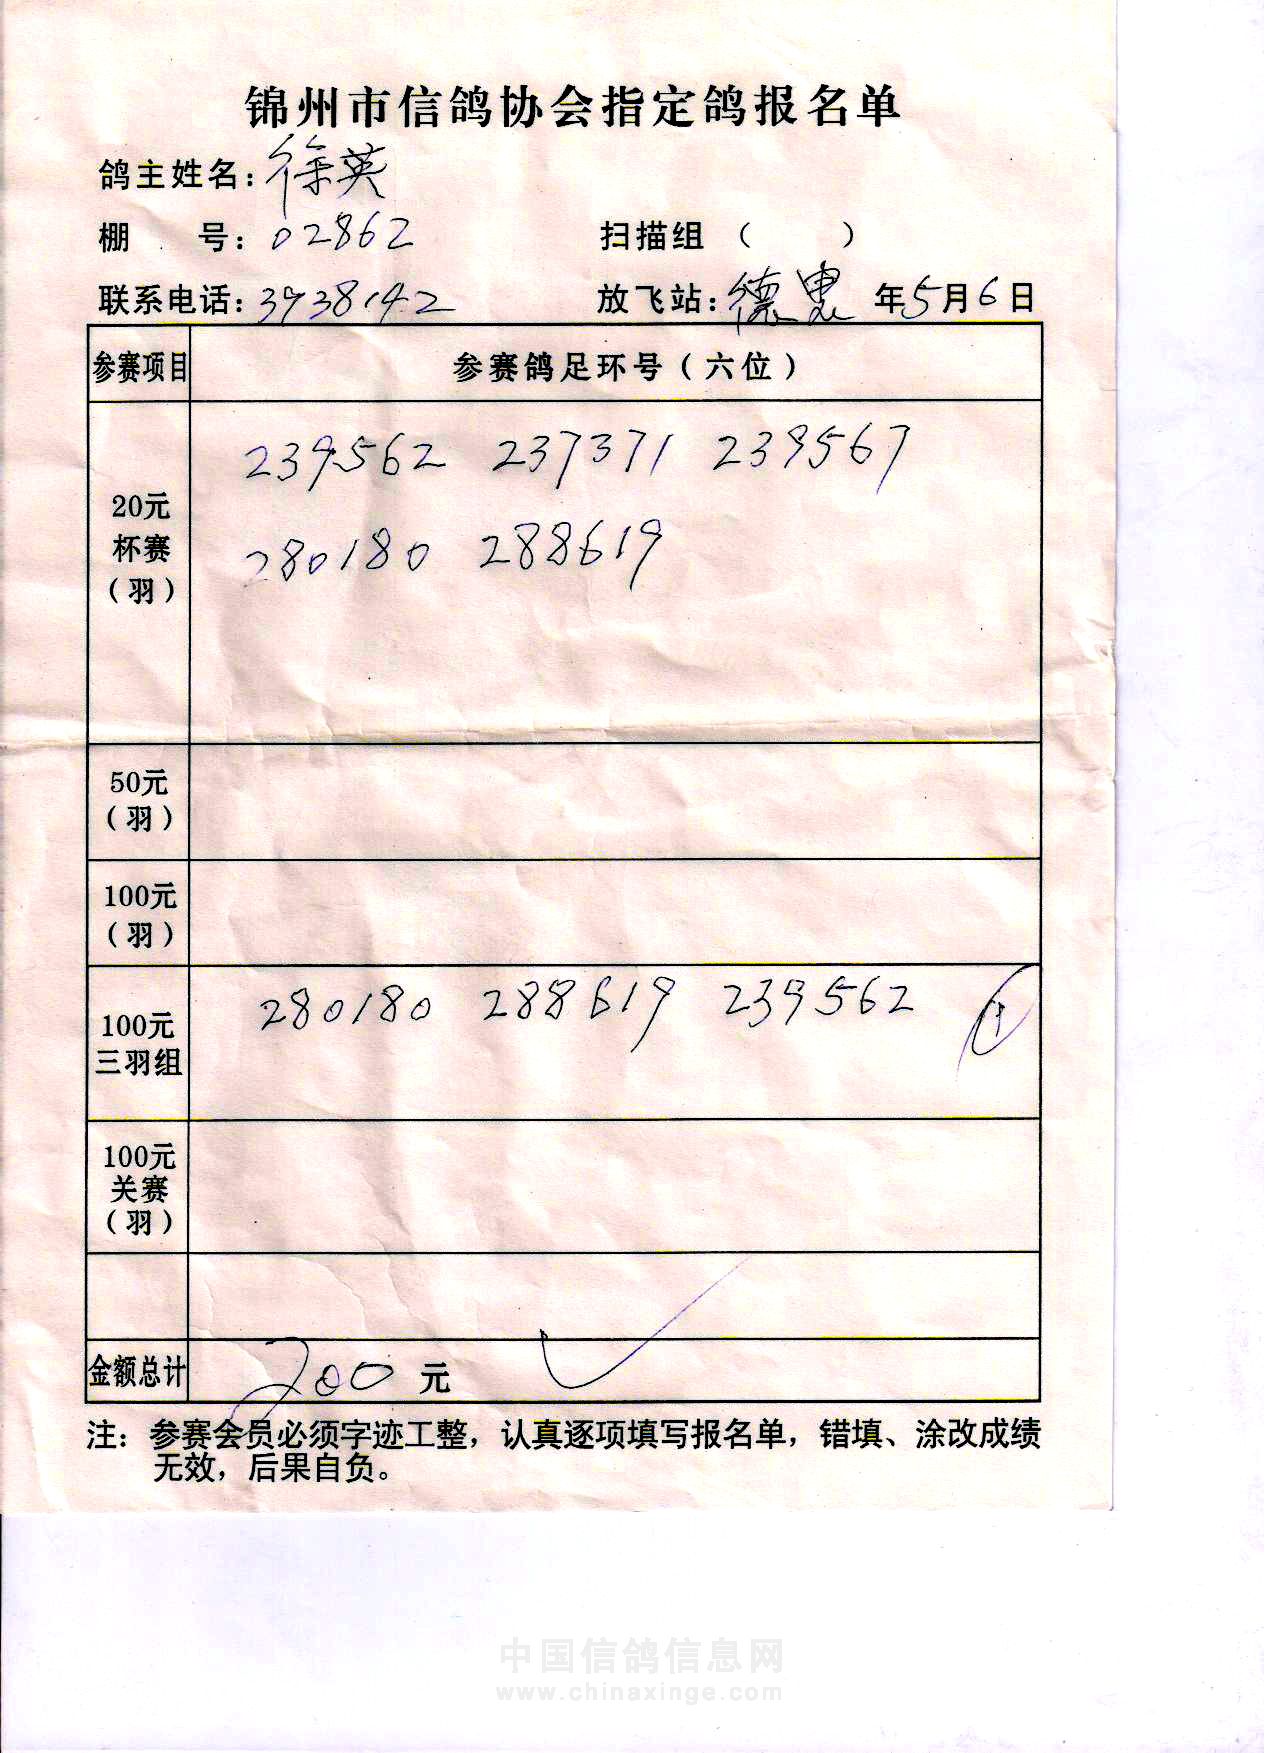 锦州市信鸽协会指定鸽报名单
鸽主姓名：徐英
棚 号：02862 扫描组（ ）
联系电话：3938142 放飞站：德惠 年5月6日
参赛项目 参赛鸽足环号（六位）
239562 237371 239567
20元
杯赛
（羽）
280180 288619
50元
（羽）
100元
（羽）
280180 288619 239562 ①
100元
三羽组
100元
关赛
（羽）
金额总计 200元
注：参赛会员必须字迹工整，认真逐项填写报名单，错填、涂改成绩
无效，后果自负。
中国信鸽信息网
www.chinaxinge.com